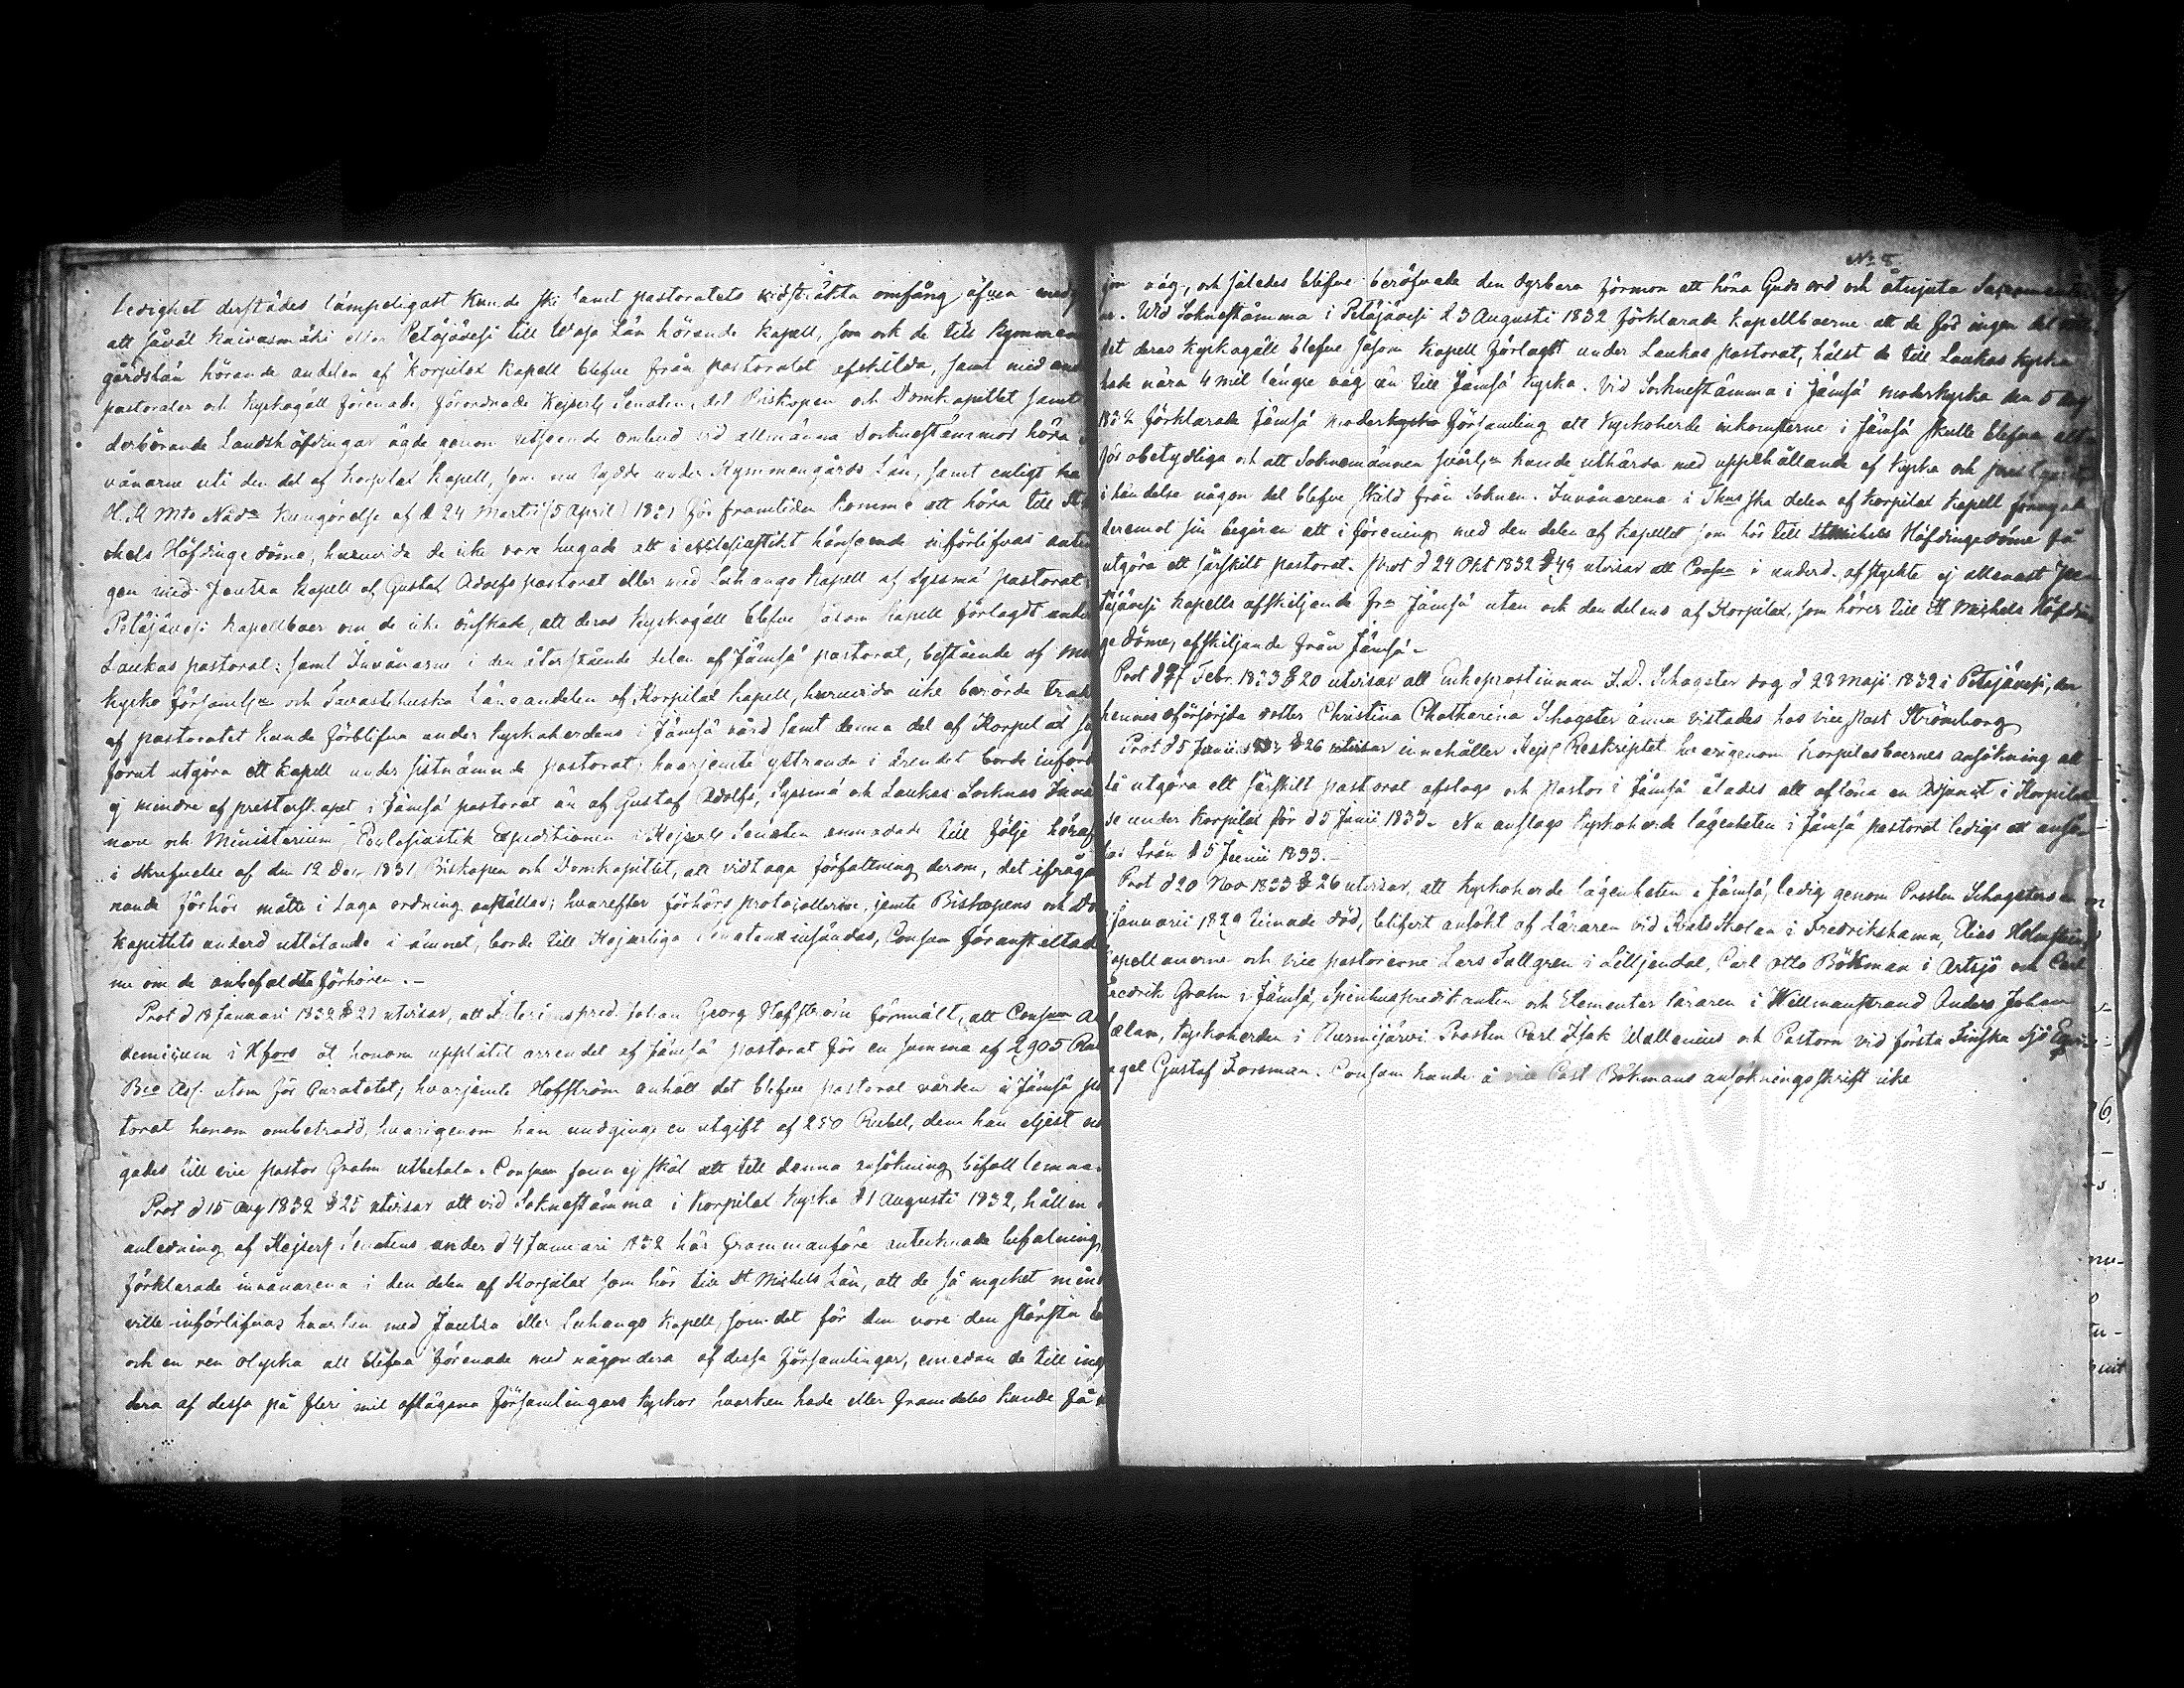 ledighet derstädes lämpeligast kunde ske samt pastoratets vidsträkta omfång äfven
att såväl Kaivasmäki eller Petäjävesi till Wasa Län hörande Kapell, som ock de till Kymmene
gårdslän hörande andelen af Korpilax Kapell blefve från pastoratet afskilda, samt med
pastorater och Kyrkogäll förenade, förordnade Kejserl Senaten, det Biskopen och Domkapitlet samt
derbörande Landshöfdingar ägde genom utseende ombud vid allmänna Socknestämmor höra
vånarne uti den del af Korpilax Kapell, som nu lydde under Kymmengårds Län, samt enligt
H. K Mts Nåda Kungörelse af d 24 Martii (5 April) 1831 för framtiden komme att höra till St
chels Höfdingedöme, huruvida de icke vore hugade att i ecklesiastikt hänseende införlifvas
gen med Joutsa Kapell af Gustaf Adolfs pastorat eller med Luhango Kapell af Sysmä pastorat
Petäjävesi Kapellboer om de icke önskade, att deras Kyrkogäll blefve såsom Kapell förlagdt under
Laukas pastorat; samt Invånarne i den återstående delen af Jämsä pastorat, bestående af
kyrko församl:n och Tavastehuska Länsandelen af Korpilax Kapell, huruvida icke berörde
af pastoratet kunde förblifva under Kyrkoherdens i Jämsä vård samt denna del af Korpilax
förut utgöra ett Kapell under sistnämnde pastorat, hvarjemte yttrande i ärendet borde
ej mindre af presterskapet i Jämsä pastorat än af Gustaf Adolfs, Sysmä och Laukas Socknes
nare och Ministerium, Ecclesiastik Expeditionen i Kejserl Senaten anmodade till följe häraf
i skrifvelse af den 12 Dec 1831 Biskopen och Domkapitlet, att vidtaga författning derom, det
nande förhör måtte i laga ordning anställas; hvarefter förhörs protocollerne, jemte Biskopens och
Kapitlets underd utlåtande i ämnet, borde till Kejserliga Senaten insändas, Consm föranstaltade
ne om de anbefaldte förhören. -
Prot d 18 Januari 1832 § 21 utvisar, att Interimspred. Johan Georg Hofström förmält, att Consm
demicum i Hfors åt honom upplåtit arrendet af Jämsä pastorat för en summa af 2,905
Bco Ass. utom för Curatotet; hvarjemte Hofström anhöll det blefve pastoral vården i Jämsä
torat honom ombetrodd, hvarigenom han undginge en utgift af 250 Rubel, dem han eljest
gades till vice pastor Grahn utbetala. Consm fann ej skäl att till denna ansökning bifall lemna.
Prot d 15 Aug 1832 § 25 utvisar att vid Soknestämma i Korpilax Kyrka d 1 Augusti 1832, hållen
anledning af Kejserl Senatens under d 4 Januari 1832 här framanföre antecknade befalning,
förklarade invånarena i den delen af Korpilax som hör till St Michels Län, att de så mycket
ville införlifvas hvarken med Joutsa eller Luhango Kapell, som det för dem vore den största
och en ren olycka att blifva förenade med någondera af dessa församlingar, emedan de till
dera af dessa på flere mil aflägsna församlingars kyrkor hvarken hade eller framdeles kunde få
No 8.
väg, och således blefve beröfvade den dyrbara förmon att höra Guds ord och åtnjuta
Wid Soknestämma i Petäjävesi 23 Augusti 1832 förklarade Kapellboerne att de
det deras kyrkogäll blefve såsom Kapell förlagdt under Laukas pastorat, hälst de till Laukas Kyrka
hade nära 4 mil längre väg än till Jämsä Kyrka. Vid Socknestämma i Jämsä moderkyrka den 5 Aug
1832 förklarade Jämsä moderkyrko församling att Kyrkoherde inkomsterne i Jämsä skulle blefva
för obetydliga och att Soknemännen svårl:n kunde uthärda med upprehållande af kyrka och
i händelse någon del blefve skild från Soknen. Invånarena i delen af Korpilax Kapell
deremot sin begäran att i förening med den delen af Kapellet som hör till St Michels Höfdingedöme få
utgöra ett särskilt pastorat. Prot d 24 Okt 1832 § 49 utvisar att Consm i underd. afstyrkte ej allenast
täjävesi Kapells afskiljande fr:n Jämsä utan ock den delens af Korpilax, som hörer till St Michels
ge döme, afskiljande från Jämsä. -
Prot d Febr. 1833 § 20 utvisar att Enkeprostinnan Schogster dog d 28 Maji 1832 i Petäjävesi,
hennes oförsörjda dotter Christina Chatharina Schogster ännu vistades hos vice past Strömborg
Prot d 5 Junii 1833 § 26 utvisar innehåller Kejs Reskriptet hvarigenom Korpilaxboernes ansökning
utgöra ett särskilt pastorat afslogs och Pastor i Jämsä ålades att aflöna en Adjunct i Korpilax
se under Korpilax för d 5 Junii 1833. Nu anslogs Kyrkoherde lägenheten i Jämsä pastorat ledig att
från d 5 Junii 1833. -
Prot d 20 Nov 1833 § 26 utvisar, att Kyrkoherde lägenheten i Jämsä, ledig genom Prosten Schogsters
Januarii 1829 timade död, blifvit ansökt af Läraren vid Skolan i Fredrikshamn, Elias
apellanerne och vice pastorerne Lars Tallgren i Liljendal, Carl Otto Böhman i Artsjö och Carl
redrik Grahn i Jämsä, Spinhuspredikanten och Elementar läraren i Willmanstrand Anders Johan
Kyrkoherden i Nurmijärvi Prosten Carl Isak Wallenius och Pastorn vid första Finska Sjö
Gustaf Forsman. Consm kunde å vice Past Böhmans ansökningsskrift icke